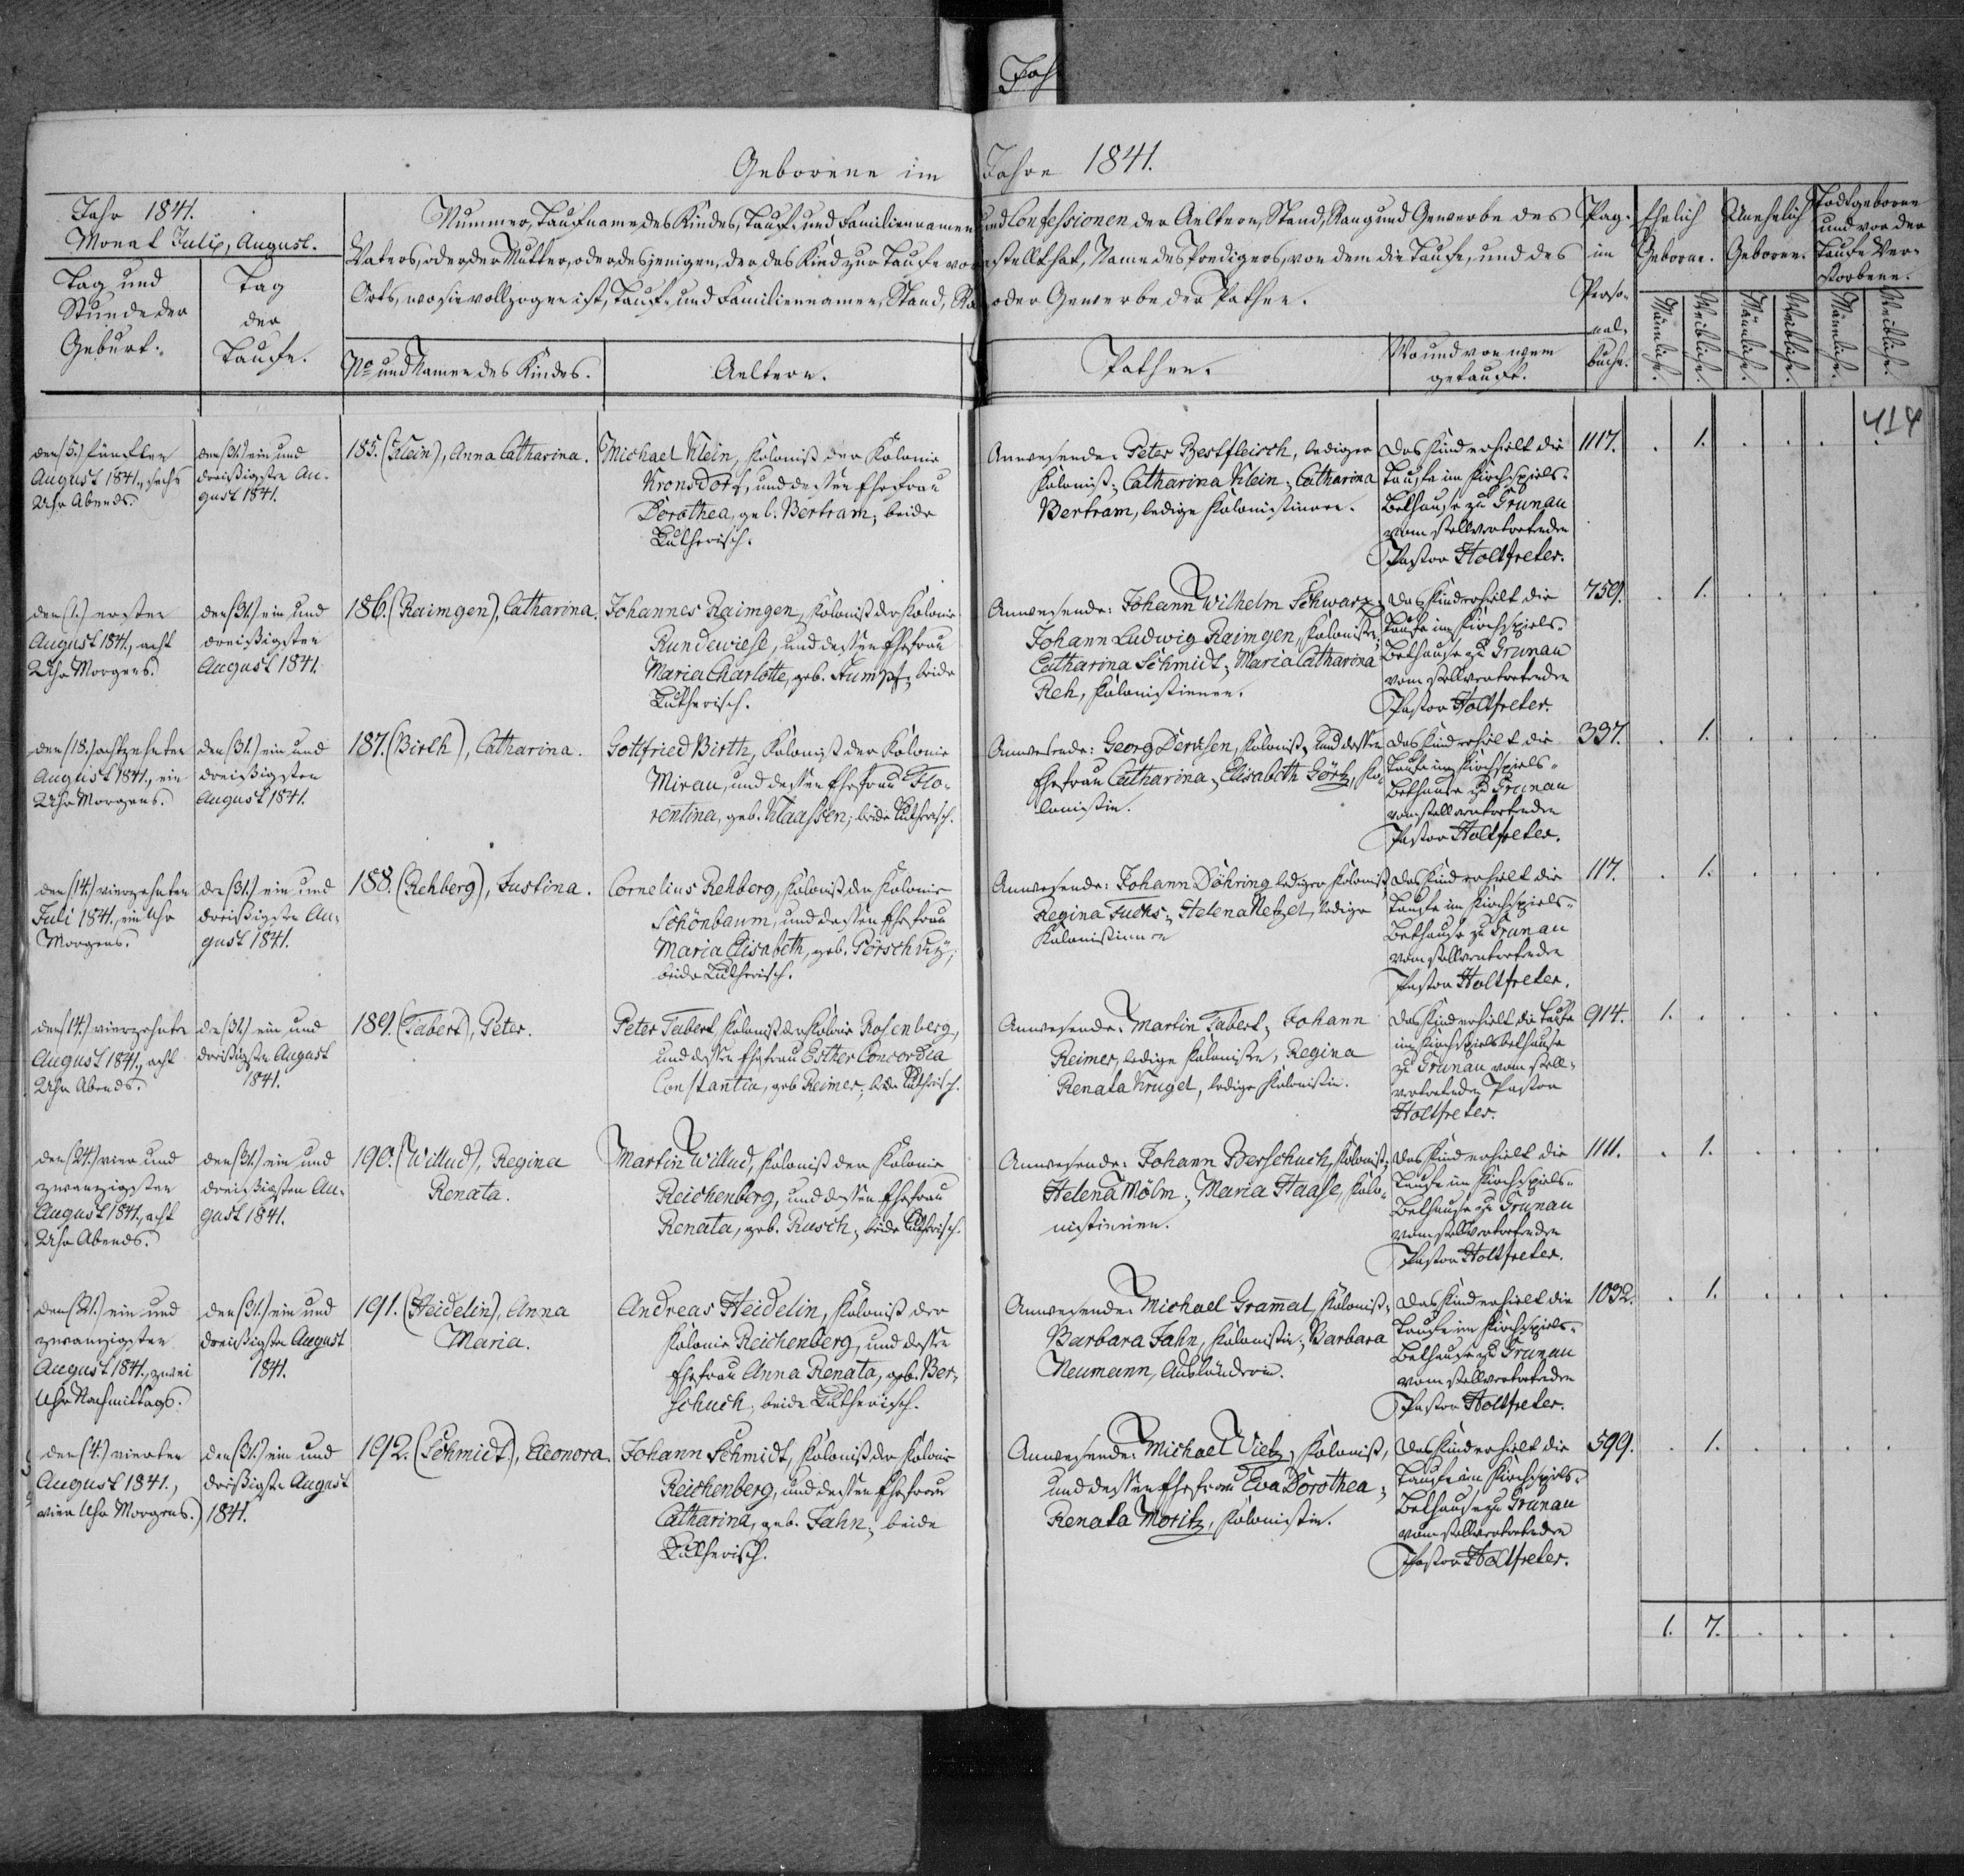 Geborene im Jahre 1841.
Jahr 1841.
Monat July, August.
Tag und
Stunde der
Geburt.
Tag
der
Taufe.
Nummer, Taufname des Kindes, Tauf- und Familiennamen und Confessionen der Aeltern, Stand, Rang und Gewerbe des
Vaters, oder der Mutter, oder desjenigen, der das Kind zur Taufe vorgestellt hat, Name des Predigers, von dem die Taufe, und des
Orts, wo sie vollzogen ist, Tauf- und Familiennamen, Stand, Rang oder Gewerbe der Pathen.
No und Namen des Kindes.
Aeltern.
Pathen.
Wo und von wem
getauft.
Pag.
im
Perso-
nal-
buche.
Ehelich
Geborne.
Unehelich
Geborene.
Todtgeborene
und vor der
Taufe Ver-
storbene.
Männliche.
Weibliche.
Männliche.
Weibliche.
Männliche.
Weibliche.
414
den (5.) fünften
August 1841., sechs
Uhr Abends.
den (31.) ein und
dreißigsten Au-
gust 1841.
185. (Klein), Anna Catharina.
Michael Klein, Kolonist der Kolonie
Kronsdorf, und dessen Ehefrau
Dorothea, geb. Bertram; beide
Lutherisch.
Anwesende: Peter Bestfleisch, lediger
Kolonist; Catharina Klein; Catharina
Bertram, ledige Kolonistinnen.
Das Kind erhielt die
Taufe im Kirchspiels-
Bethause zu Grunau
vom stellvertretenden
Pastor Holtfreter.
1117. . 1. . . . .
den (1.) ersten
August 1841., acht
Uhr Morgens.
den (31.) ein und
dreißigsten
August 1841.
186. (Raimgen), Catharina.
Johannes Raimgen, Kolonist der Kolonie
Rundewiese, und dessen Ehefrau
Maria Charlotte, geb. Stumpf; beide
Lutherisch.
Anwesende: Johann Wilhelm Schwarz;
Johann Ludwig Raimgen, Kolonisten;
Catharina Schmidt; Maria Catharina
Reh, Kolonistinnen.
Das Kind erhielt die
Taufe im Kirchspiels-
Bethause zu Grunau
vom stellvertretenden
Pastor Holtfreter.
759. . 1. . . . .
den (18.) achtzehnten
August 1841., ein
Uhr Morgens.
den (31.) ein und
dreißigsten
August 1841.
187. (Birth), Catharina.
Gottfried Birth, Kolonist der Kolonie
Mirau, und dessen Ehefrau Flo-
rentina, geb. Klaassen; beide Lutherisch.
Anwesende: Georg Derksen, Kolonist, und dessen
Ehefrau Catharina; Elisabeth Görtz, Ko-
lonistin.
Das Kind erhielt die
Taufe im Kirchspiels-
Bethause zu Grunau
vom stellvertretenden
Pastor Holtfreter.
337. . 1. . . . .
den (14.) vierzehnten
Juli 1841., ein Uhr
Morgens.
den (31.) ein und
dreißigsten Au-
gust 1841.
188. (Rehberg), Justina.
Cornelius Rehberg, Kolonist der Kolonie
Schönbaum, und dessen Ehefrau
Maria Elisabeth, geb. Pörschky;
beide Lutherisch.
Anwesende: Johann Döhring lediger Kolonist;
Regina Fuchs; Helena Netzel, ledige
Kolonistinnen
Das Kind erhielt die
Taufe im Kirchspiels-
Bethause zu Grunau
vom stellvertretenden
Pastor Holtfreter.
117. . 1. . . . .
den (14.) vierzehnten
August 1841., acht
Uhr Abends.
den (31.) ein und
dreißigsten August
1841.
189. (Tabert), Peter.
Peter Tabert, Kolonist der Kolonie Rosenberg,
und dessen Ehefrau Esther Concordia
Constantia, geb. Reimer; beide Lutherisch.
Anwesende: Martin Tabert; Johann
Reimer, ledige Kolonisten; Regina
Renata Krugel, ledige Kolonistin.
Das Kind erhielt die Taufe
im Kirchspielsbethause
zu Grunau vom stell-
vertretenden Pastor
Holtfreter.
914. 1. . . . . .
den (24.) vier und
zwanzigsten
August 1841., acht
Uhr Abends.
den (31.) ein und
dreißigsten Au-
gust 1841.
190. (Willud), Regina
Renata.
Martin Willud, Kolonist der Kolonie
Reichenberg, und dessen Ehefrau
Renata, geb. Rusch; beide Lutherisch.
Anwesende: Johann Berschuck, Kolonist;
Helena Mölm; Maria Haase, Kolo-
nistinnen.
Das Kind erhielt die
Taufe im Kirchspiels-
Bethause zu Grunau
vom stellvertretenden
Pastor Holtfreter.
1111. . 1. . . . .
den (21.) ein und
zwanzigsten
August 1841., zwei
Uhr Nachmittags.
den (31.) ein und
dreißigsten August
1841.
191. (Heidelin), Anna
Maria.
Andreas Heidelin, Kolonist der
Kolonie Reichenberg, und dessen
Ehefrau Anna Renata, geb. Ber-
schuck; beide Lutherisch.
Anwesende: Michael Gram̄at, Kolonist;
Barbara Jahn, Kolonistin; Barbara
Neumann, Ausländerin.
Das Kind erhielt die
Taufe im Kirchspiels-
Bethause zu Grunau
vom stellvertretenden
Pastor Holtfreter.
1032. . 1. . . . .
den (4.) vierten
August 1841.,
vier Uhr Morgens.
den (31.) ein und
dreißigsten August
1841.
192. (Schmidt), Eleonora.
Johann Schmidt, Kolonist der Kolonie
Reichenberg, und dessen Ehefrau
Catharina, geb. Jahn; beide
Lutherisch.
Anwesende: Michael Vietz, Kolonist,
und dessen Ehefrau Eva Dorothea;
Renata Moritz, Kolonistin.
Das Kind erhielt die
Taufe im Kirchspiels-
Bethause zu Grunau
vom stellvertretenden
Pastor Holtfreter.
599. . 1. . . . .
1. 7. . . . .